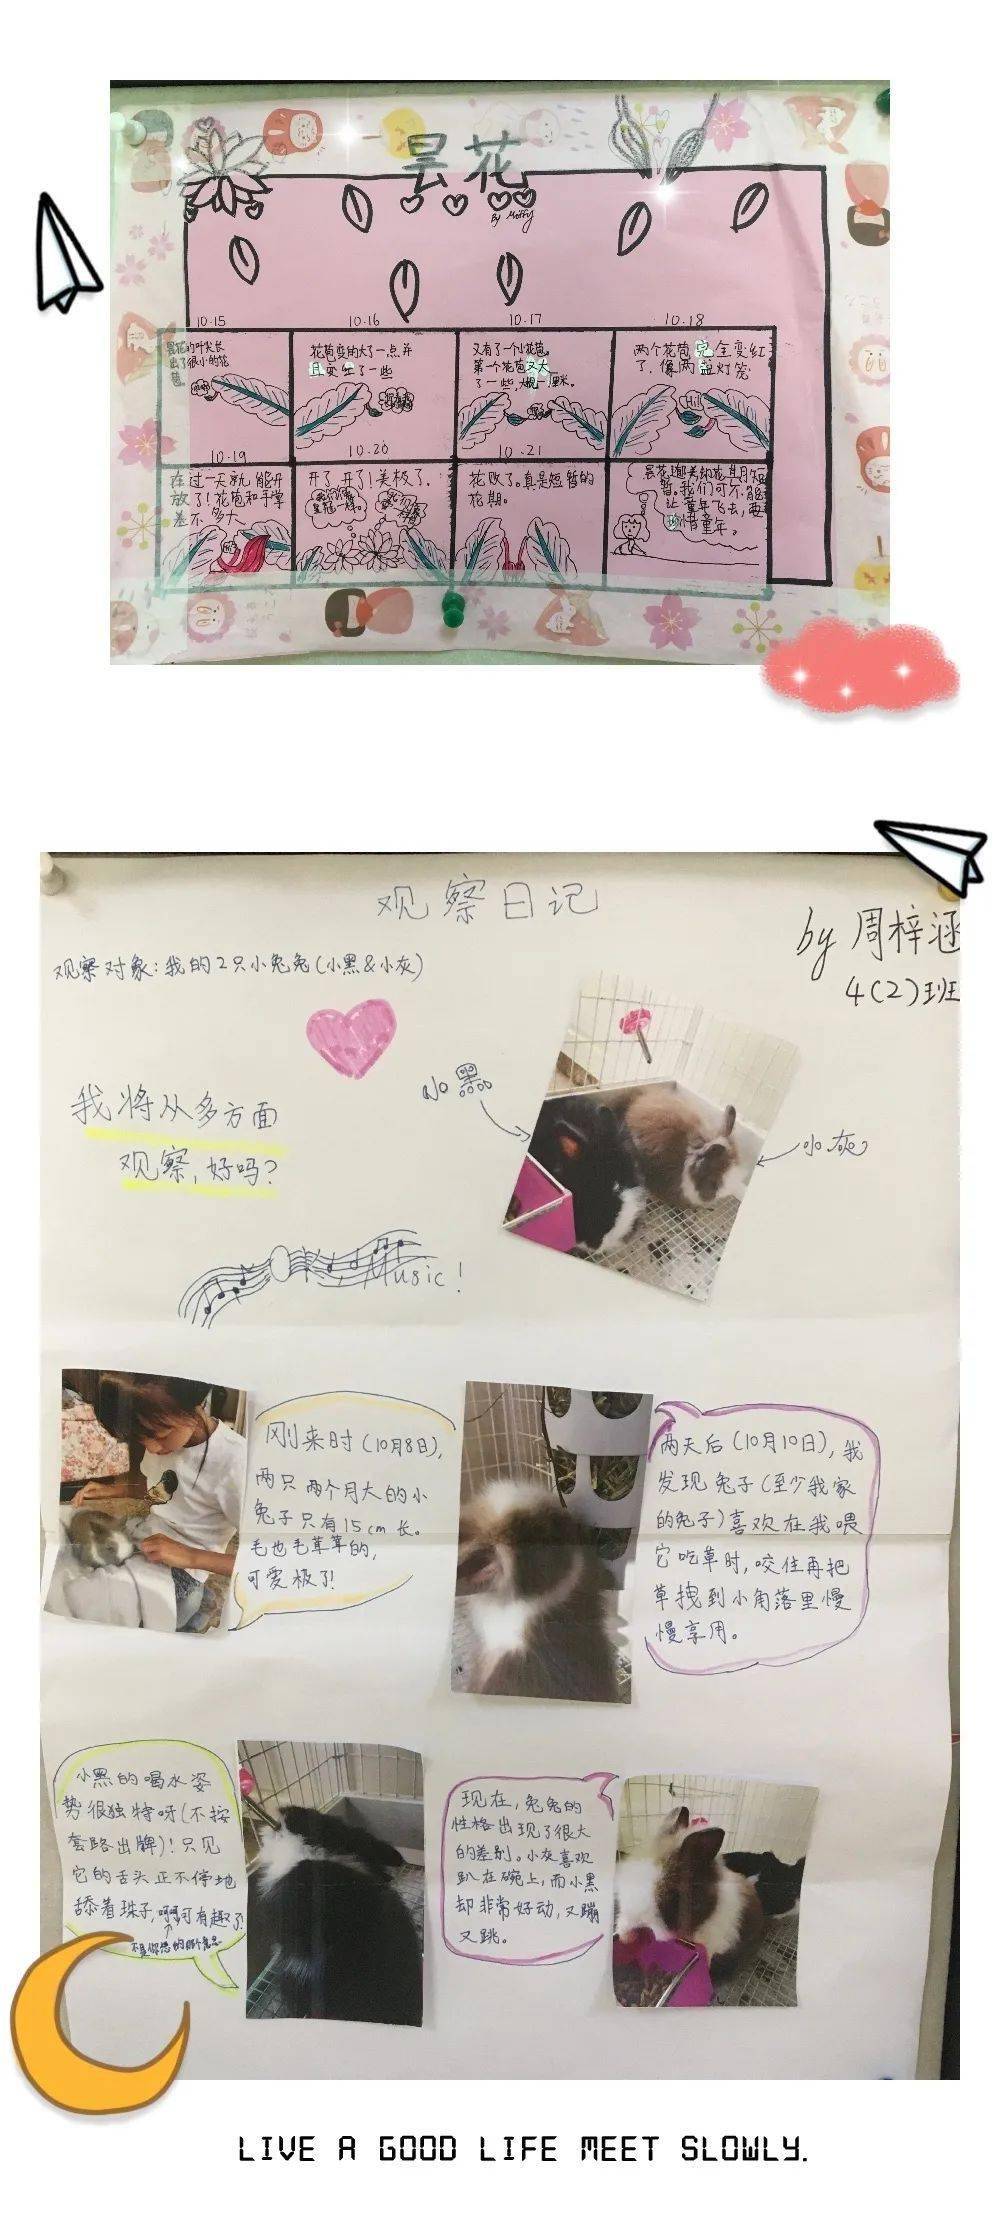 昙花
By Moffy
10.15
昙花的叶尖长
出了很小的花
苞
10.16
花苞变的大了一点并
且变红了一些
10.17
又有了一个小花苞。
第一个花苞又大
了一些,大概一厘米。
10.18
两个花苞完全变红
了,像两盏灯笼
Hi!
10.19
在过一天就能开
放了!花苞和手掌
差不多大
10.20
开了,开了!美极了。
10.21
花败了。真是短暂的
花期。
让童年飞去,要
珍惜童年。
观察日记
by 周梓涵
4(2)班
观察对象:我的2只小兔兔(小黑&小灰)
我将从多方面
观察,好吗?
小黑
小灰
Music!
刚来时(10月8日),
两只两个月大的小
兔子只有15cm长。
毛也毛茸茸的,
可爱极了!
两天后(10月10日),我
发现兔子(至少我家
的兔子)喜欢在我喂
它吃草时,咬住再把
草拽到小角落里慢
慢享用。
小黑的喝水姿
势很独特呀(不按
套路出牌)!只见
它的舌头正不停地
舔着珠子,呵呵可有趣了!
不是你想的那个意思
现在,兔兔的
性格出现了很大
的差别。小灰喜欢
趴在碗上,而小黑
却非常好动,又蹦
又跳。
LIVE A GOOD LIFE MEET SLOWLY.